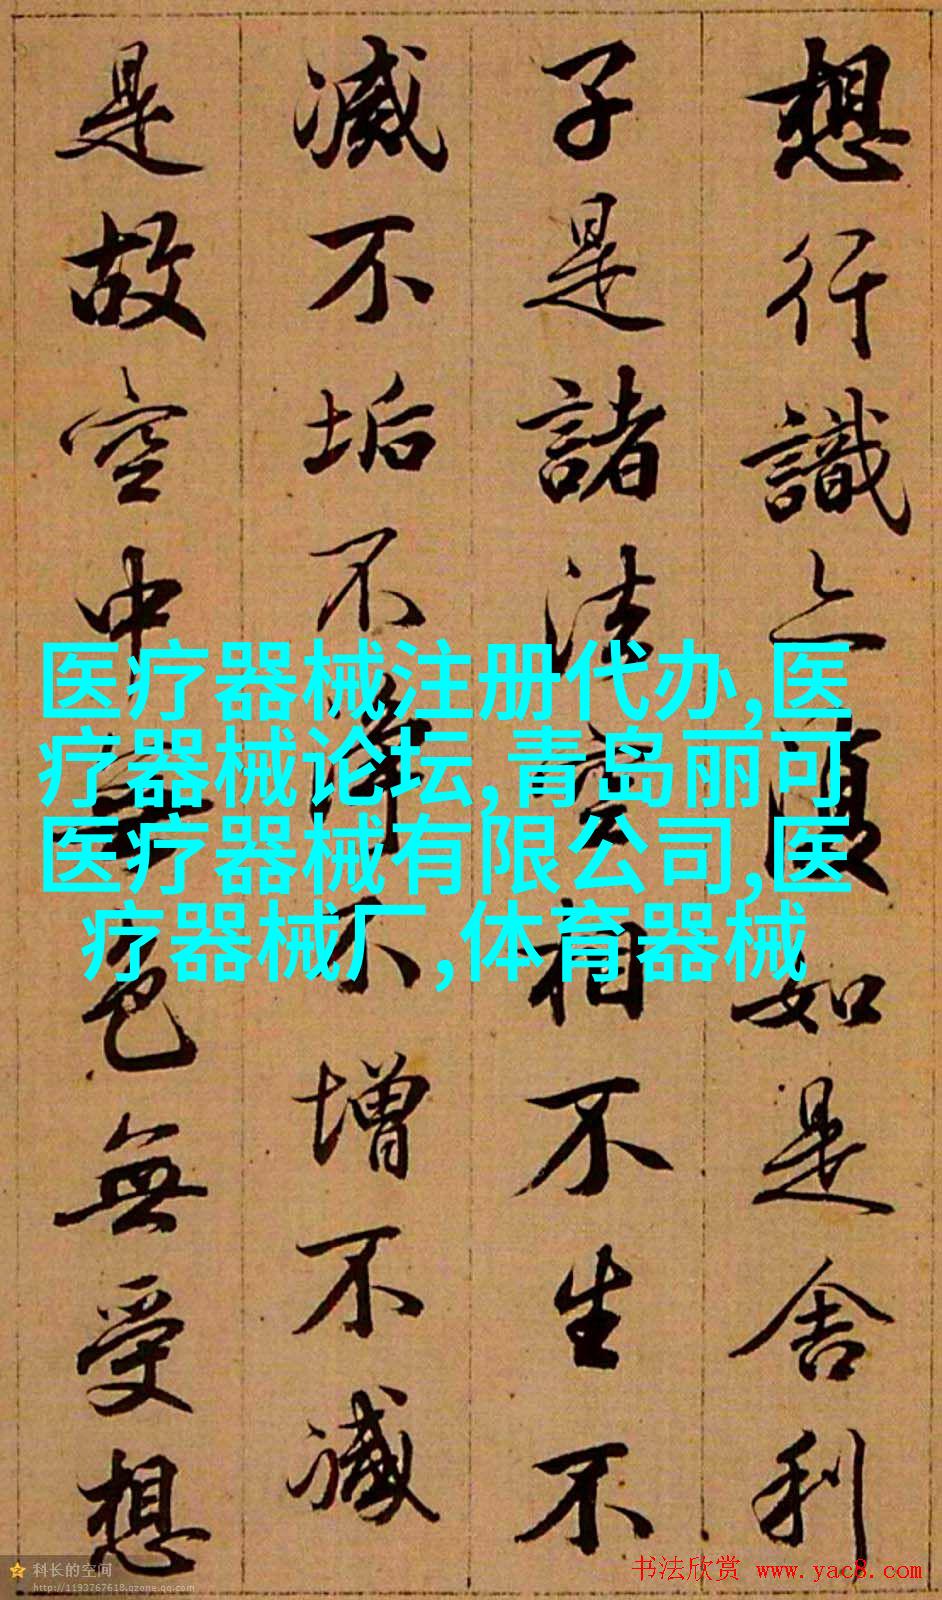 想行識亦復如是舍利
子是諸法空相不生不
滅不垢不淨不增不減
是故空中無色無受想
医疗器械注册代办,医
疗器械论坛,青岛丽可
医疗器械有限公司,医
疗器械厂,体育器械
科长的空间
http://1193767618.qzone.qq.com
书法欣赏 www.yac8.com